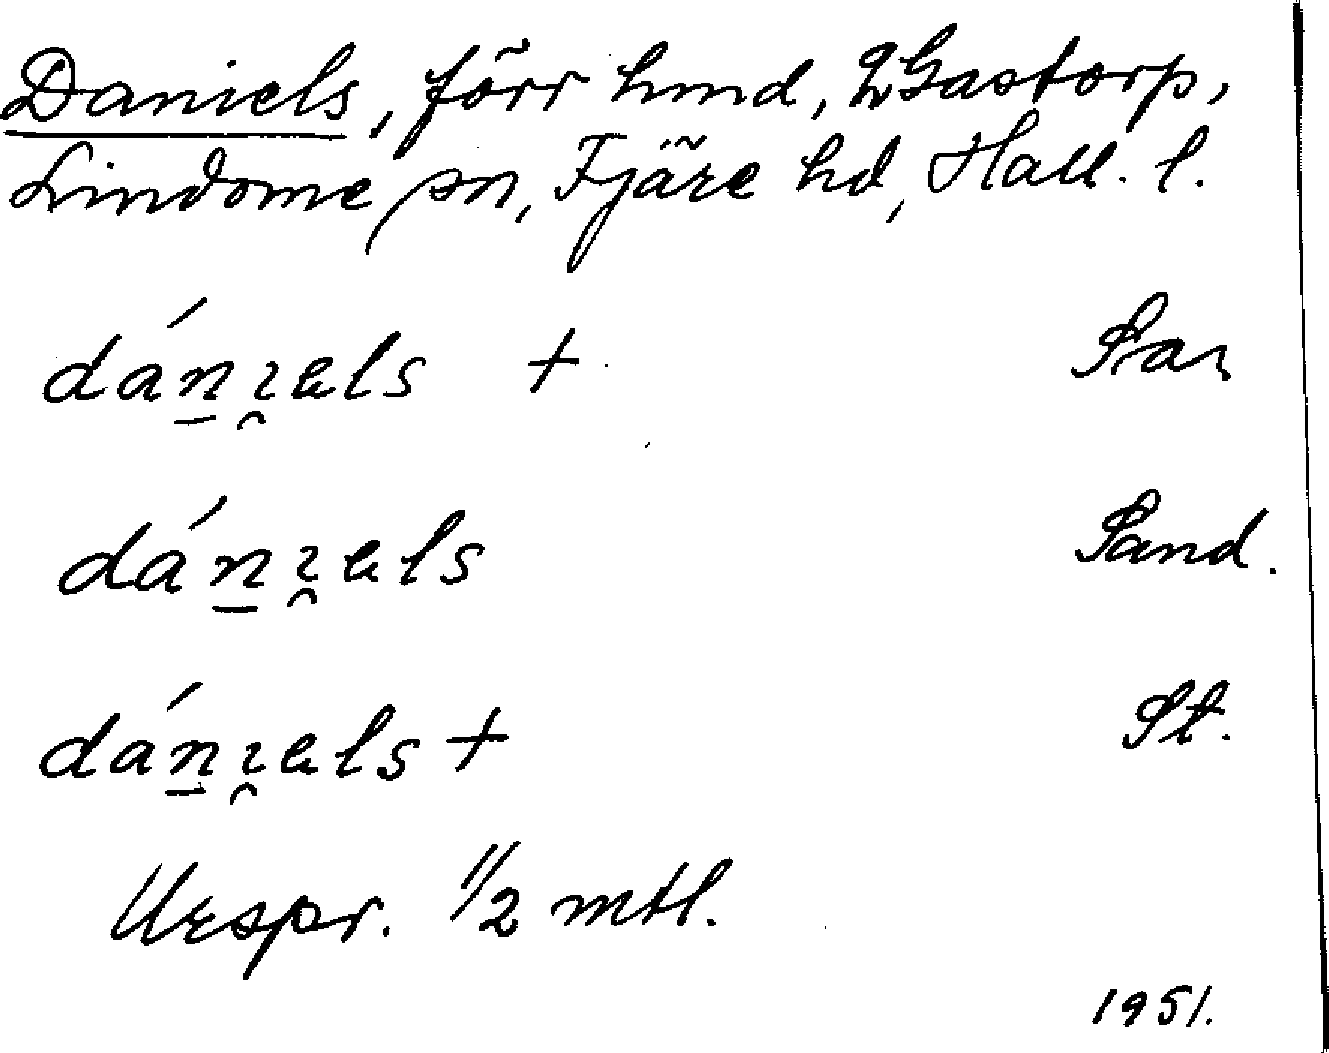 Daniels, förr hmd, Gastorp,
Lindome sn, Fjäre hd, Hall. l.
dán̠ɪ̯ɐls +
dán̠ɪ̯ɐls Sand.
dán̠ɪ̯ɐls + St.
Urspr. 1/2 mtl.
1951.